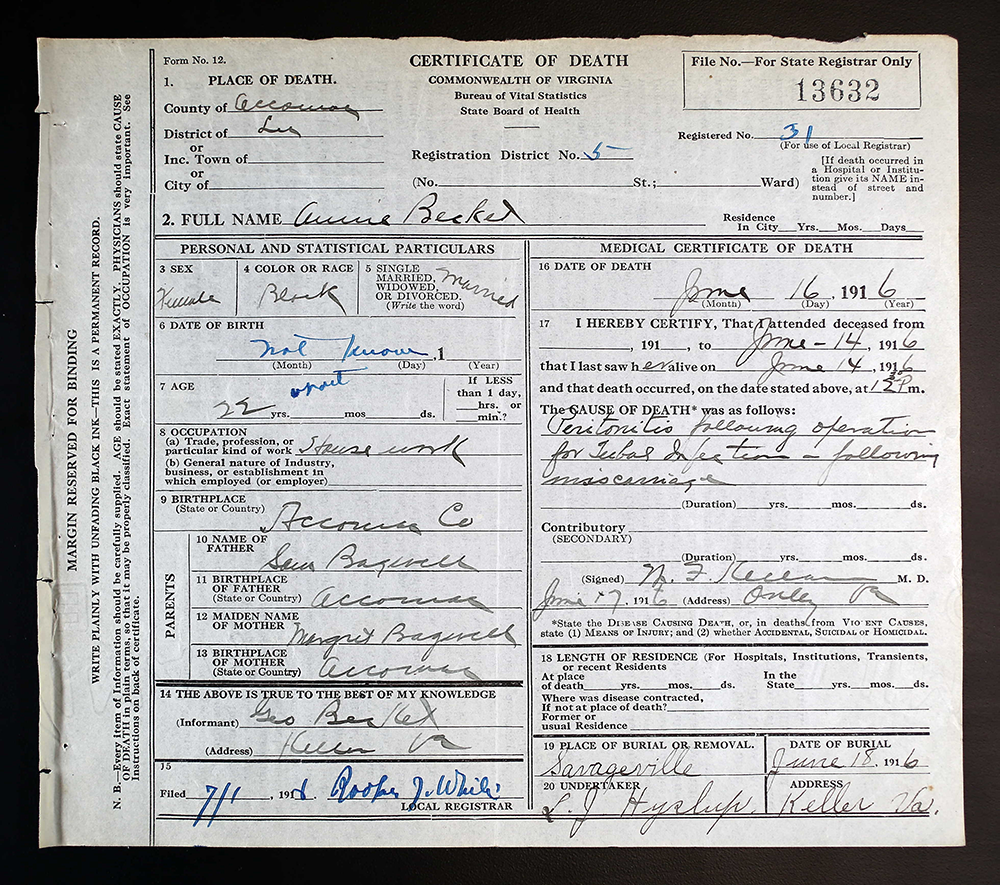 MARGIN RESERVED FOR BINDING
WRITE PLAINLY WITH UNFADING BLACK INK—THIS IS A PERMANENT RECORD.
N. B.—Every item of information should be carefully supplied. AGE should be stated EXACTLY. PHYSICIANS should state CAUSE
OF DEATH in plain terms, so that it may be properly classified. Exact statement of OCCUPATION is very important. See
instructions on back of certificate.
Form No. 12.
CERTIFICATE OF DEATH
COMMONWEALTH OF VIRGINIA
Bureau of Vital Statistics
State Board of Health
File No.—For State Registrar Only
13632
1. PLACE OF DEATH.
County of Accomac
District of Lee
or
Inc. Town of
or
City of
Registration District No. 5
Registered No. 31
(For use of Local Registrar)
(No. St.; Ward)
[If death occurred in
a Hospital or Institu-
tion give its NAME in-
stead of street and
number.]
2. FULL NAME Annie Becket
Residence
In City Yrs. Mos. Days
PERSONAL AND STATISTICAL PARTICULARS
3 SEX
Female
4 COLOR OR RACE
Black
5 SINGLE
MARRIED,
WIDOWED,
OR DIVORCED.
(Write the word)
Married
6 DATE OF BIRTH
not know, 1
(Month) (Day) (Year)
7 AGE
about
22 yrs. mos ds.
If LESS
than 1 day,
hrs. or
min.?
8 OCCUPATION
(a) Trade, profession, or
particular kind of work House work
(b) General nature of Industry,
business, or establishment in
which employed (or employer)
9 BIRTHPLACE
(State or Country)
Accomac Co
PARENTS
10 NAME OF
FATHER
Bagwell
11 BIRTHPLACE
OF FATHER
(State or Country) Accomac
12 MAIDEN NAME
OF MOTHER
Margret Bagwell
13 BIRTHPLACE
OF MOTHER
(State or Country) Accomac
14 THE ABOVE IS TRUE TO THE BEST OF MY KNOWLEDGE
(Informant) Geo Becket
(Address) Keller Va
15
Filed 7/1, 191
LOCAL REGISTRAR
MEDICAL CERTIFICATE OF DEATH
16 DATE OF DEATH
June 16, 1916
(Month) (Day) (Year)
17 I HEREBY CERTIFY, That I attended deceased from
, 191 , to June - 14, 1916
that I last saw her alive on June 14, 1916
and that death occurred, on the date stated above, at m.
The CAUSE OF DEATH* was as follows:
Peritonitis following operation
for Tubal Infection - following
miscarriage
(Duration) yrs. mos. ds.
Contributory
(SECONDARY)
(Duration) yrs. mos. ds.
(Signed) M. D.
June 17, 1916 (Address) Onley Va
*State the DISEASE CAUSING DEATH, or, in deaths from VIOLENT CAUSES,
state (1) MEANS OF INJURY; and (2) whether ACCIDENTAL, SUICIDAL or HOMICIDAL.
18 LENGTH OF RESIDENCE (For Hospitals, Institutions, Transients,
or recent Residents
At place
of death yrs. mos. ds.
In the
State yrs. mos. ds.
Where was disease contracted,
If not at place of death?
Former or
usual Residence
19 PLACE OF BURIAL OR REMOVAL.
Savageville
DATE OF BURIAL
June 18, 1916
20 UNDERTAKER
L. J Hyslup.
ADDRESS
Keller Va.